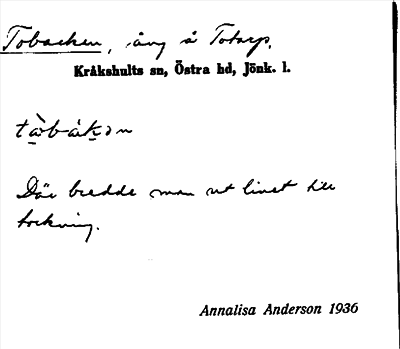 Tobacken, äng å Totarp,
Kråkshults sn, Östra hd, Jönk. l.
tàb-àkən
Där bredde man ut linet till
torkning.
Annalisa Anderson 1936